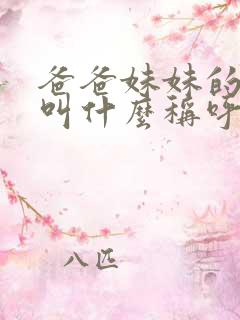 爸爸妹妹的
叫什麼稱呼
八匹